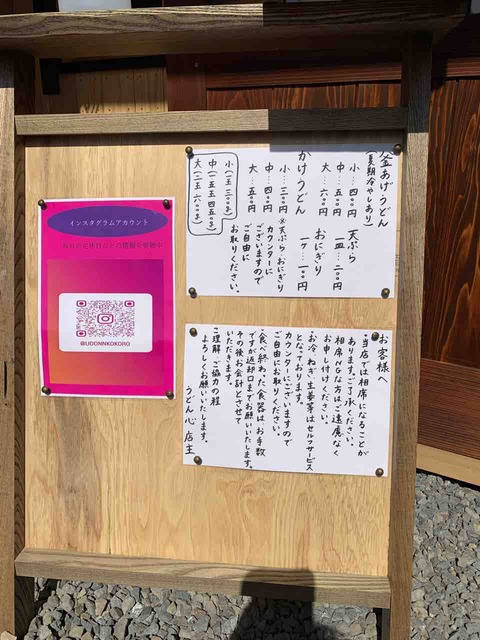 釜あげうどん
(夏期冷やしあり)
小…四〇〇円
中…五〇〇円
大…六〇〇円
天ぷら
一皿…二〇〇円
おにぎり
一ヶ…一〇〇円
かけうどん
小…三〇〇円
中…四〇〇円
大…五〇〇円
※天ぷら、おにぎり
カウンターに
ございますので
ご自由に
お取りください。
小
中
大
お客様へ
・当店では相席になることが
あります。ご了承ください。
相席NGな方はご遠慮なく
お申し付けください。
・お冷、ねぎ、生姜等はセルフサービス
となっております。
カウンターにございますので
ご自由にお取りください。
・食べ終わった食器は、お手数
ですが返却口までお願いいたします。
その後お会計とさせて
いただきます。
ご理解、ご協力の程
よろしくお願いいたします。
うどん心 店主
インスタグラムアカウント
@UDONNKOKORO